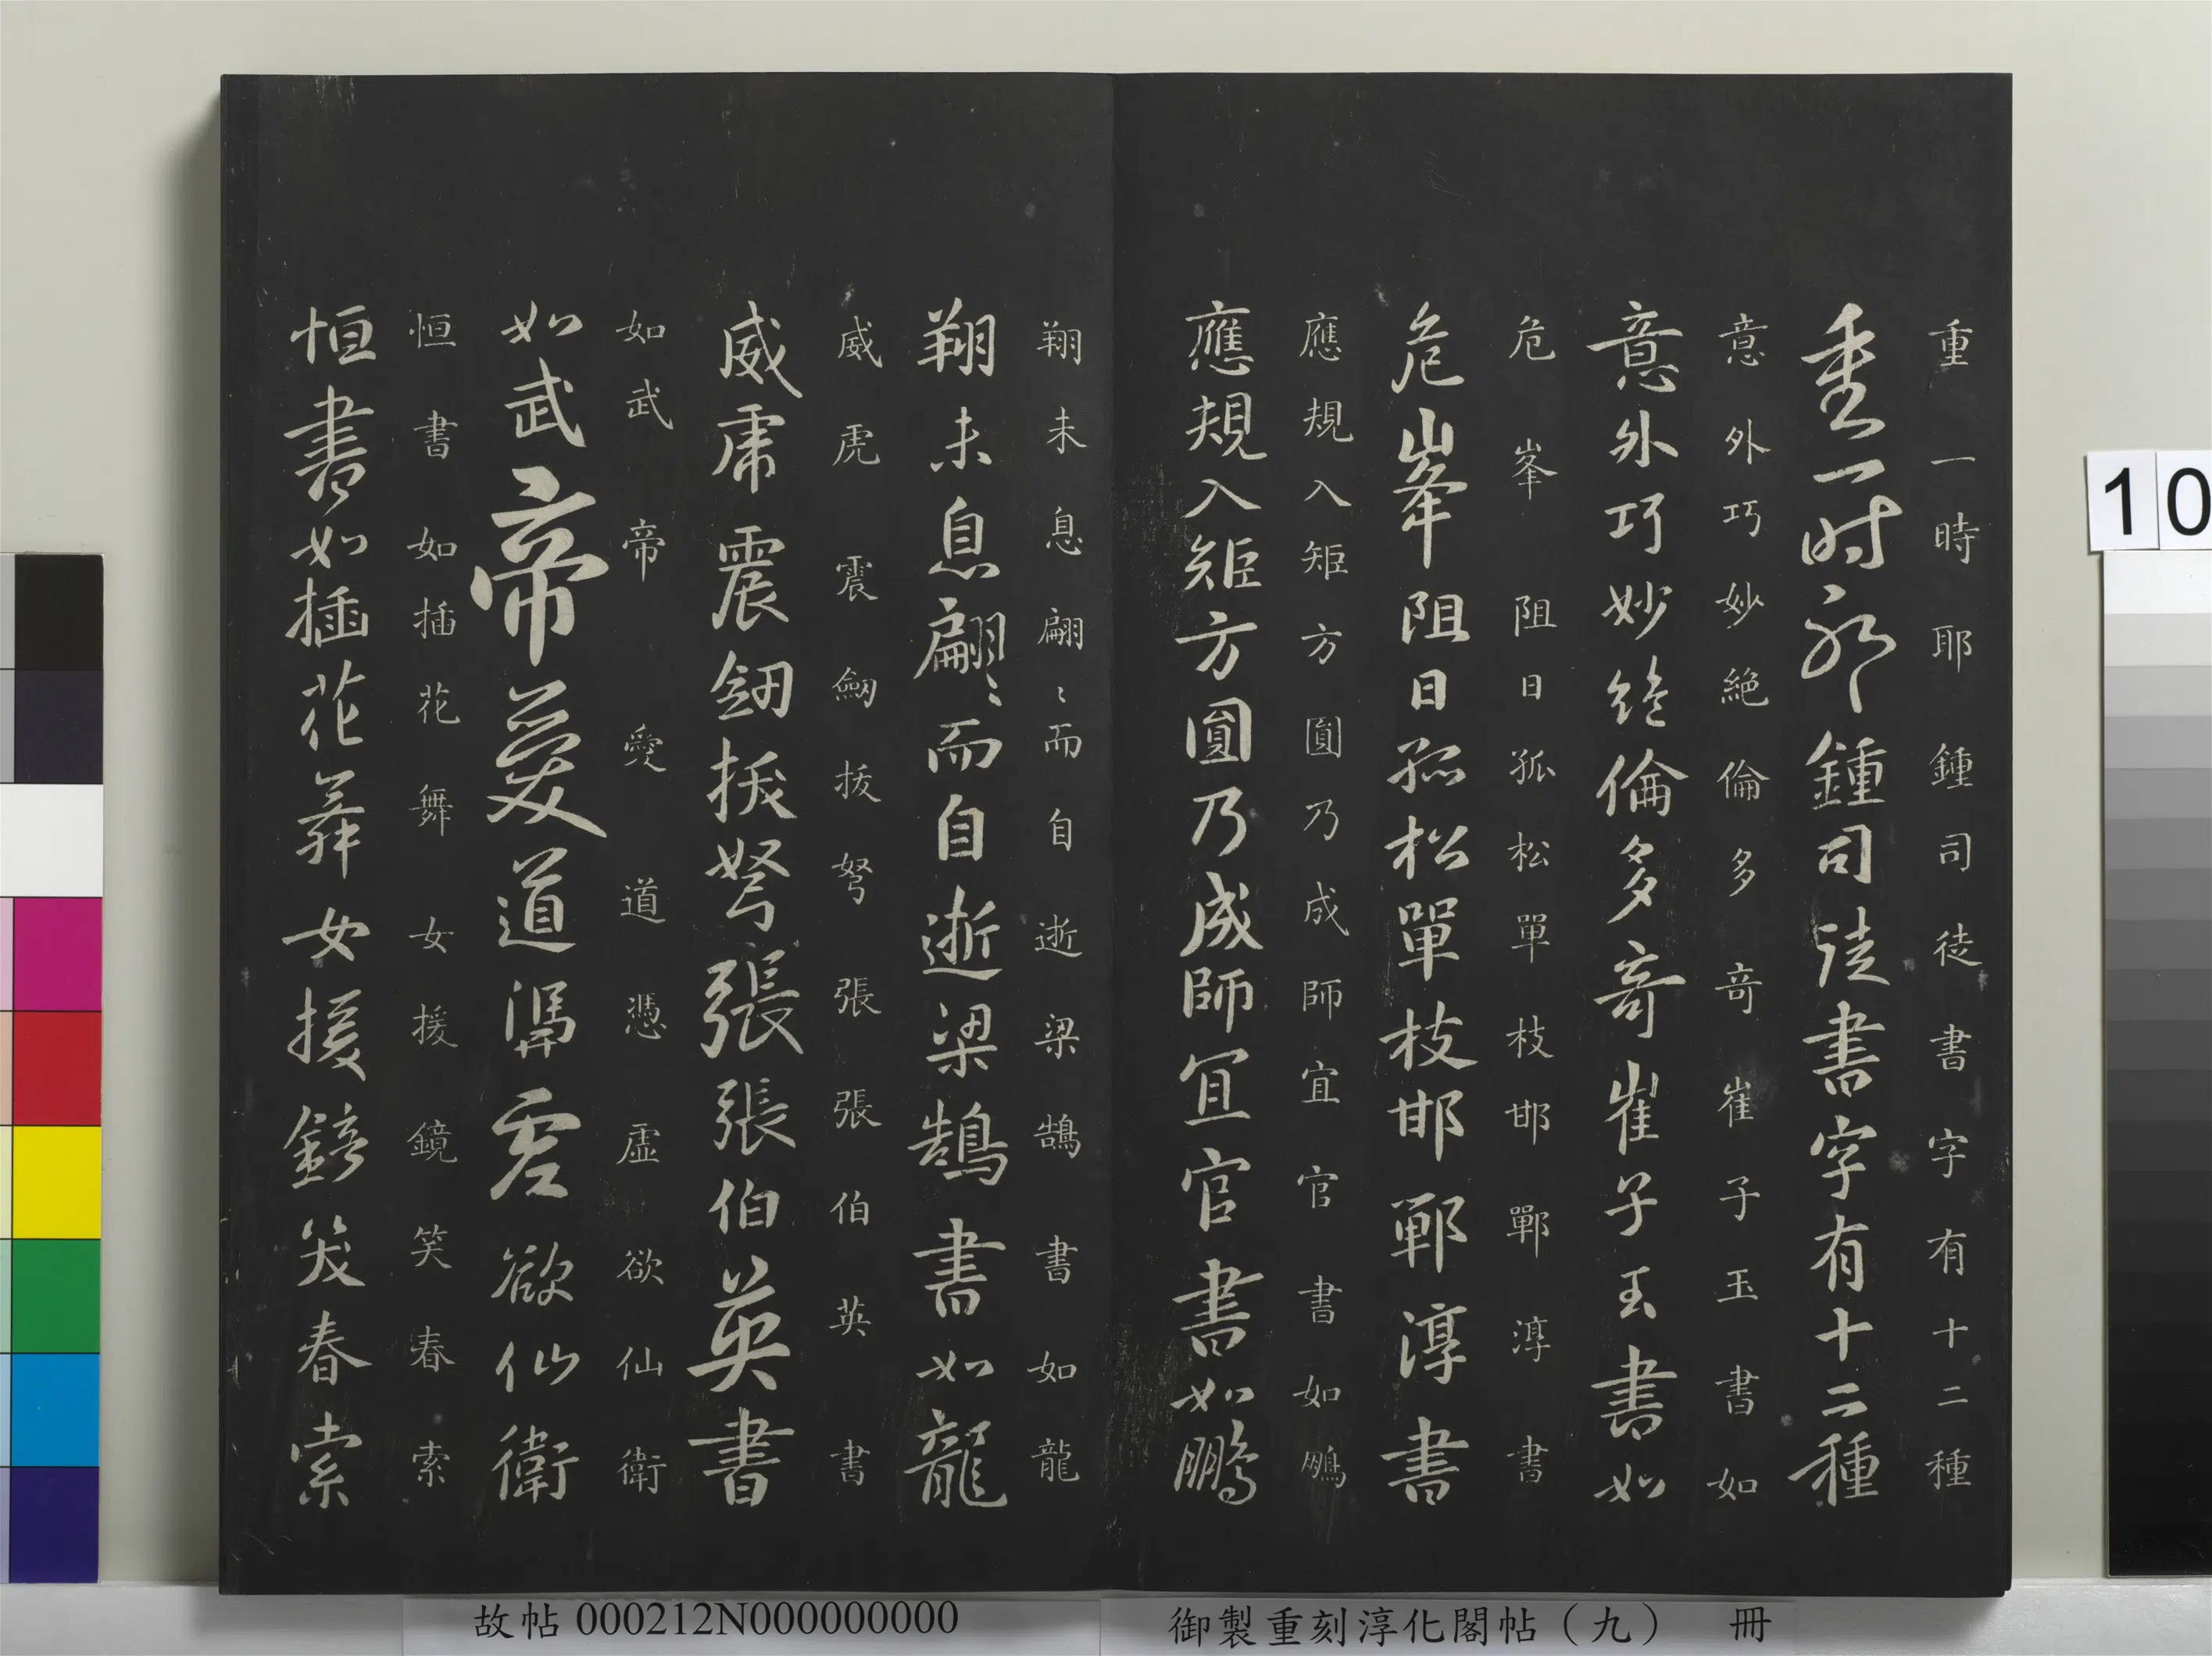 重一時耶鍾司徒書字有十二種
重一時耶鍾司徒書字有十二種
意外巧妙絕倫多奇崔子玉書如
意外巧妙絕倫多奇崔子玉書如
危峯阻日孤松單枝邯鄲淳書
危峯阻日孤松單枝邯鄲淳書
應規入矩方圓乃成師宜官書如鵬
應規入矩方圓乃成師宜官書如鵬
翔未息翩〻而自逝梁鵠書如龍
翔未息翩〻而自逝梁鵠書如龍
威虎震劒拔弩張張伯英書
威虎震劒拔弩張張伯英書
如武帝愛道憑虛欲仙衛
如武帝愛道憑虛欲仙衛
恒書如插花舞女援鏡笑春索
恒書如插花舞女援鏡笑春索
10
故帖 000212N000000000
御製重刻淳化閣帖（九） 冊